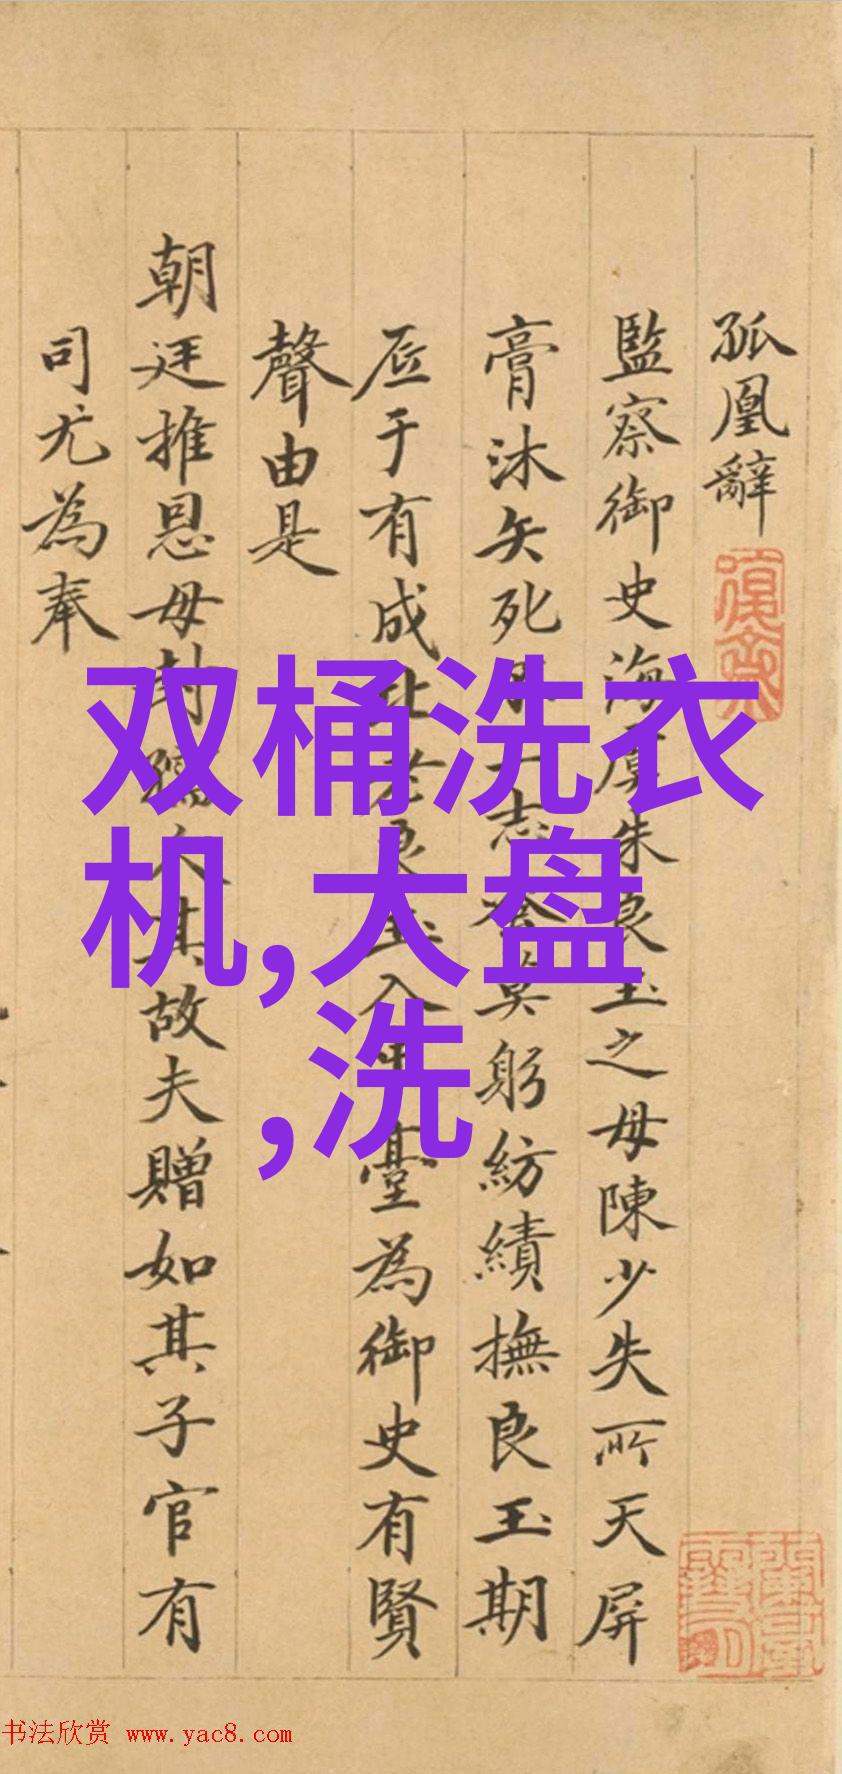 孤凰辭
監察御史海虞朱良玉之母陳少失所天屏
膏沐矢死一志 莫躬紡績撫良玉期
底于有成 良玉入臺為御史有賢
聲由是
朝廷推恩母封孺人其故夫贈如其子官有
司尤為奉
双桶洗衣
机,大盘
,洗
书法欣赏 www.yac8.com